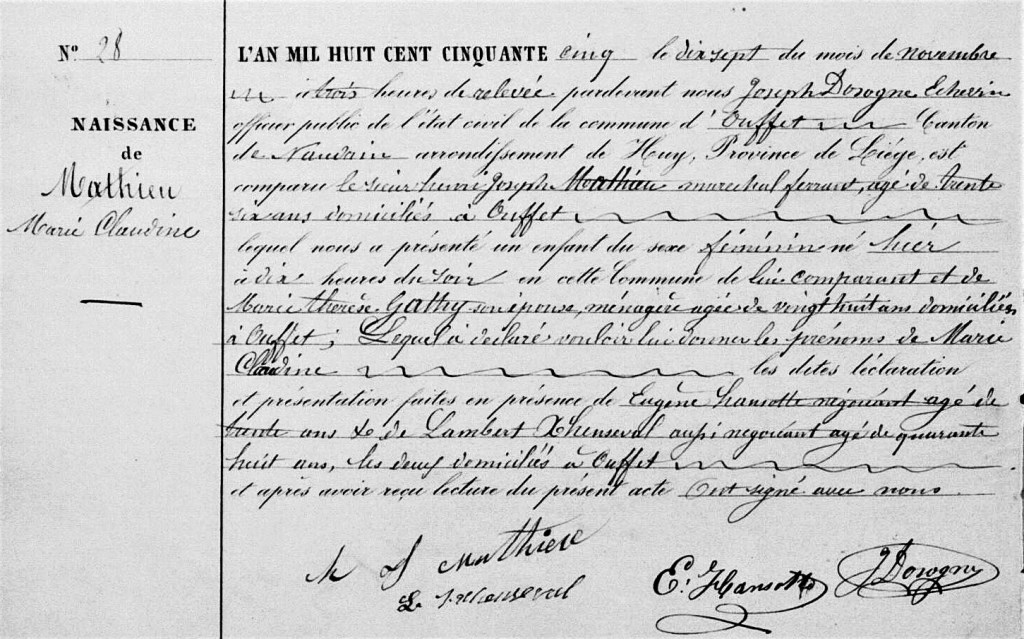 N° 28
NAISSANCE
de
Mathieu
Marie Claudine
L'AN MIL HUIT CENT CINQUANTE cinq le dix sept du mois de novembre
à trois heures de relevée pardevant nous Joseph Dosogne Echevin
officier public de l'état civil de la commune d'Ouffet Canton
de Nandrin arrondissement de Huy, Province de Liége, est
comparu le sieur henri Joseph Mathieu marechal ferrant, agé de trente
six ans domiciliés à Ouffet
lequel nous a présenté un enfant du sexe féminin né hier
à dix heures du soir en cette Commune de lui comparant et de
Marie thérèse Gathy son épouse, ménagère agée de vingt huit ans domiciliés
à Ouffet; Lequel à declaré vouloir lui donner les prénoms de Marie
Claudine les dites déclaration
et présentation faites en présence de Eugène hansotte négociant agé de
trente ans & de Lambert Xhenseval aussi negociant agé de quarante
huit ans, les deux domiciliés à Ouffet
et après avoir reçu lecture du présent acte Ont signé avec nous.
Mathieu
L. Xhenseval
E. Hansotte
J Dosogne